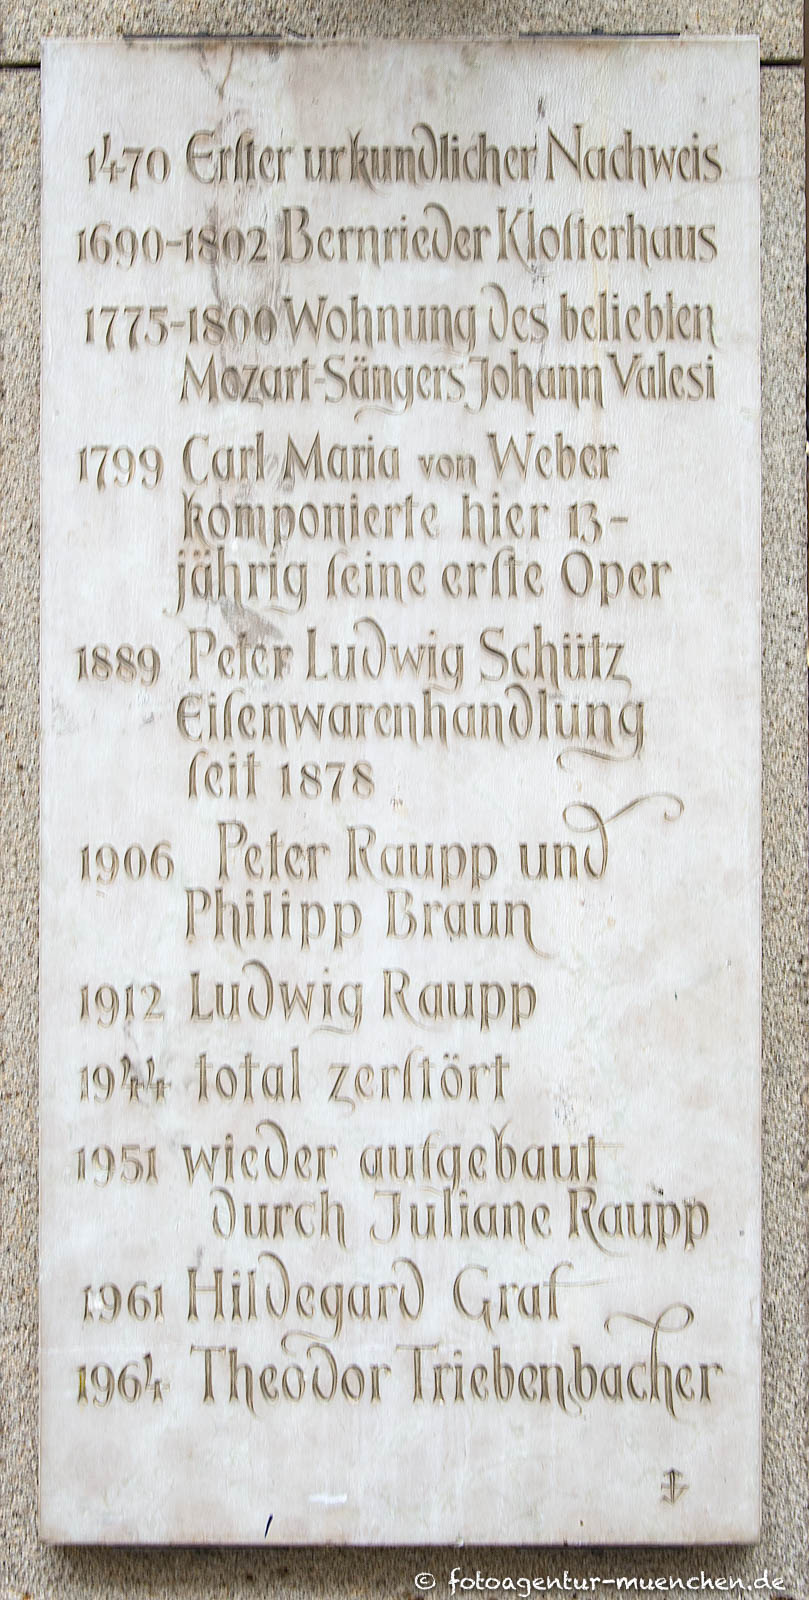 1470 Erſter urkundlicher Nachweis
1690-1802 Bernrieder Kloſterhaus
1775-1800 Wohnung des beliebten
Mozart-Sängers Johann Valesi
1799 Carl Maria von Weber
komponierte hier 13-
jährig ſeine erſte Oper
1889 Peter Ludwig Schütz
Eiſenwarenhandlung
ſeit 1878
1906 Peter Raupp und
Philipp Braun
1912 Ludwig Raupp
1944 total zerſtört
1951 wieder aufgebaut
durch Juliane Raupp
1961 Hildegard Graf
1964 Theodor Triebenbacher
© fotoagentur-muenchen.de